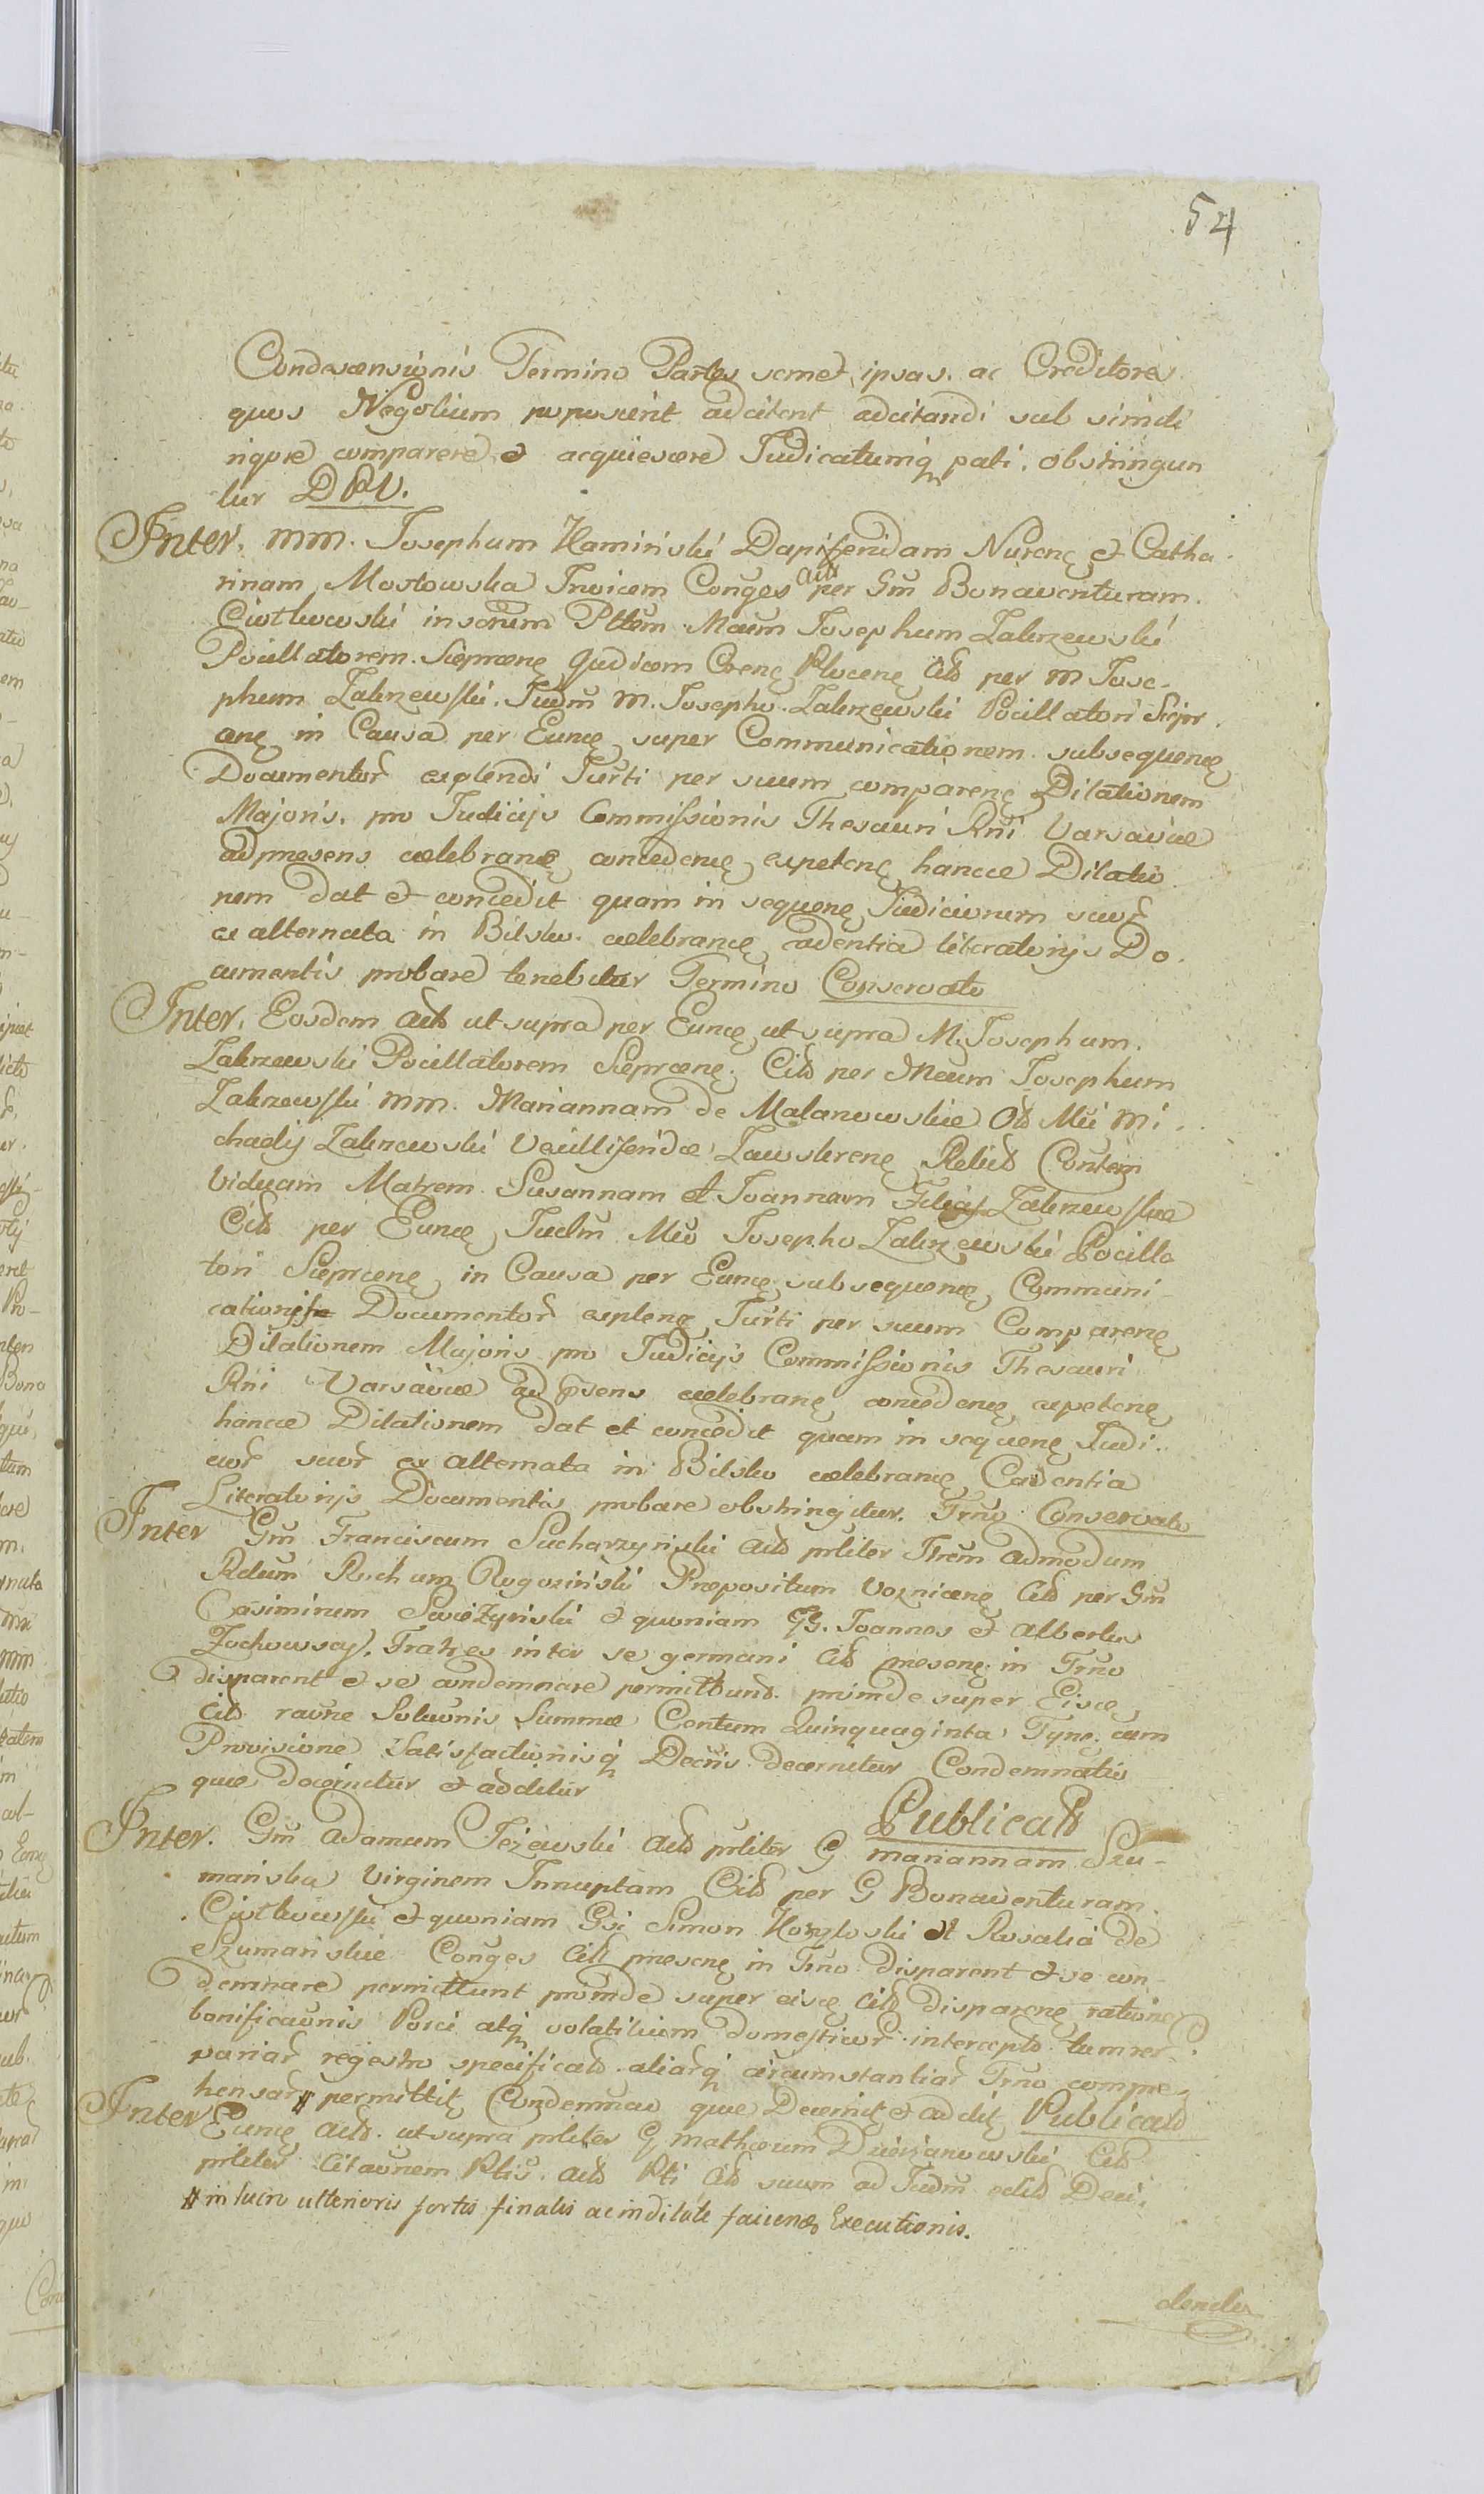 54
Condescensionis Termino Partes semet ipsas. ac Creditores
quos Negotium poposcerit adcitent adcitandi sub simili
rigore comparere et acquiescere Judicatumq pati. obstringun
tur DPV.
Inter. mm. Josephum Kaminski Dapiferidam Nurenę et Catha-
rinam Mostowska Invicem Conges actt per Gm Bonaventuram.
Ciotkowski Pttem Mcum Josephum Zakrzewski
Pocillatorem. Sieprcenę Judicem Plocenę Citt per M Jose-
phum Zakrzewski. Judm M. Josepho Zakrzewski Pocillatori Siepr.
cenę in Causa per Eunce super Communicationem subsequenę
Documentor explendi per suum comparenę Dilationem
Majoris. pro Judicijs Commissionis Thesauri Rni Varsaviæ
ad presens celebranę concedenę expetenę hancce Dilatio
nem dat et concedit quam in sequenę Judiciorum suor
ex alternata in Bilsko. celebranę cadentia literatorijs Do.
cumentis probare tenebitur Termino Conservato
Inter. Eosdem actt ut supra per Eunce ut supra M. Josephum.
Zakrzewski Pocillatorem Sieprcenę. Citt per Mcum Josephum
Zakrzewski mm. Mariannam de Malanowskie Ott Mci Mi.
chaelis Zakrzewski Vexilliferidæ Zawskrenę Relictt Contem
Viduam Matrem Susannam et Joannam Filias Zakrzewskie
Citt per Eunce Judm Mco Josepho Zakrzewski Pocilla
tori Sieprcenę in Causa per Eunce subsequenę Communi-
cationis Documentor explenę per suum Comparenę
Dilationem Majoris pro Judicijs Commissionis Thesauri
Rni Varsaviæ ad psens celebranę concedenę expetenę
hancce Dilationem dat et concedit quam in sequenę Judi-
cior suor ex alternata in Bilsko celebranę Cadentia
Literatorijs Documentis probare obstringitur. Trno Conservato
Inter Gm Franciscum Sucharzynski actt prliter Irem admodum
Rdum Rochum Rogozinski Prepositum Voznicenę Citt per Gm
Casimirum et quoniam GG. Joannes et Albertus
Zochowscy. Fratres inter se germani Citt presenę in Trno
disparent et se condemnare permittunt. proinde super Eisce
Citt raone Soluonis Summæ Centum Quinquaginta Tyne. cum
Provisione Satisfactionisq Decris decernitur Condemnatio
que docernitur et additur
Publicatt
Inter. Gm Adamum Jeżewski actt prliter G Mariannam Szu-
manska Virginem Innuptam Citt per G Bonaventuram.
Ciotkowski et quoniam Gsi Simon et Rosalia de
Szumanskie Conges Citt presenę in Trno disparent et se con-
demnare permittunt proinde super eisce Citt disparenę ratione
bonificaonis Porci atq volatilium domesticor. interceptt tum rer
variar regestro specificatt. aliarq circumstantiar Trno compre-
hensar # permittitę Condemnao que Decernitę et additę Publicatt
Inter Eunce actt. ut supra prliter G Mathæum Dzierzanowski Citt
prliter. Citaonem Ptis. actt Pti Citt suum ad Judm edid Deci.
# in lucro ulterioris fortis finalis ac indilate faciendæ Executionis.
dendo